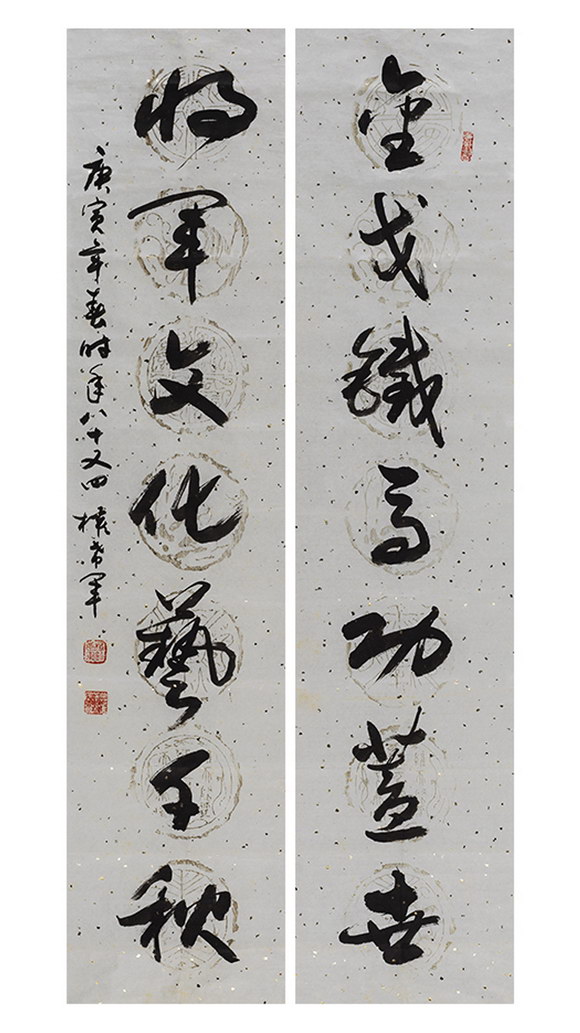 金戈鐵馬功蓋世
将军文化藝千秋
庚寅年春時年八十又四權希军